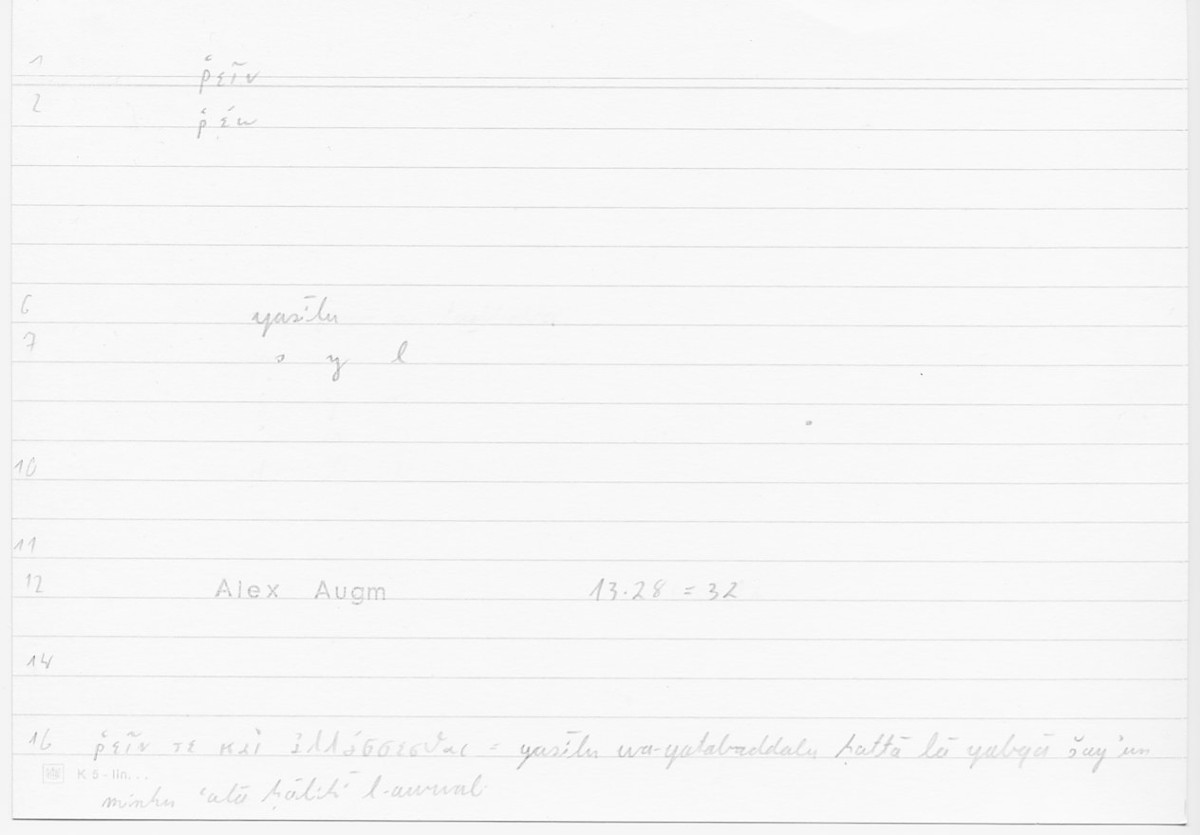 1 ῥεῖν
2 ῥέω
6 yasīlu
7 s y l
10
11
12 Alex Augm 13.28 = 32
14
16 ῥεῖν τε καὶ ἀλλάσσεσθαι = yasīlu wa-yatabaddalu ḥattā lā yabqā šayʾun
K 5 - lin...
minhu ʿalā ḥālihī l-awwal